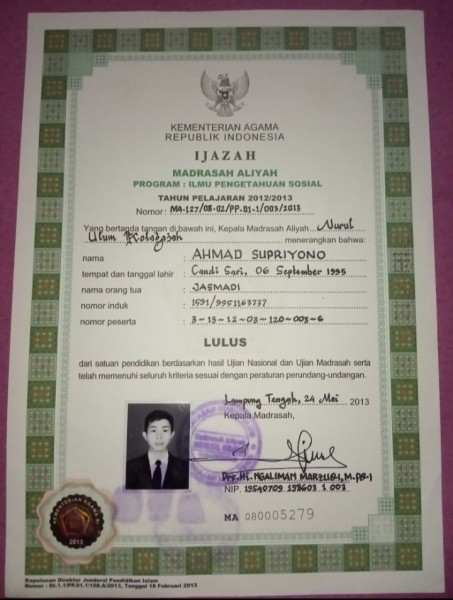 KEMENTERIAN AGAMA
REPUBLIK INDONESIA
IJAZAH
MADRASAH ALIYAH
PROGRAM : ILMU PENGETAHUAN SOSIAL
TAHUN PELAJARAN 2012/2013
Nomor: MA-127/08-02/PP.01-1/003/2013
Yang bertanda tangan di bawah ini, Kepala Madrasah Aliyah Nurul
Ulum Kotagajah menerangkan bahwa:
nama : AHMAD SUPRIYONO
tempat dan tanggal lahir : Candi Sari, 06 September 1995
nama orang tua : JASMADI
nomor induk : 1591/9951163737
nomor peserta : 3-13-12-03-120-003-6
LULUS
dari satuan pendidikan berdasarkan hasil Ujian Nasional dan Ujian Madrasah serta
telah memenuhi seluruh kriteria sesuai dengan peraturan perundang-undangan.
Lampung Tengah, 24 Mei 2013
Kepala Madrasah,
NGALIMAN MARZUQI, M.Pd.I
NIP. 19540709 198603 1 003
MA 080005279
KEMENTERIAN AGAMA
2013
Keputusan Direktur Jenderal Pendidikan Islam
Nomor : Dt.I.I/PP.01.1/108.A/2013, Tanggal 18 Februari 2013